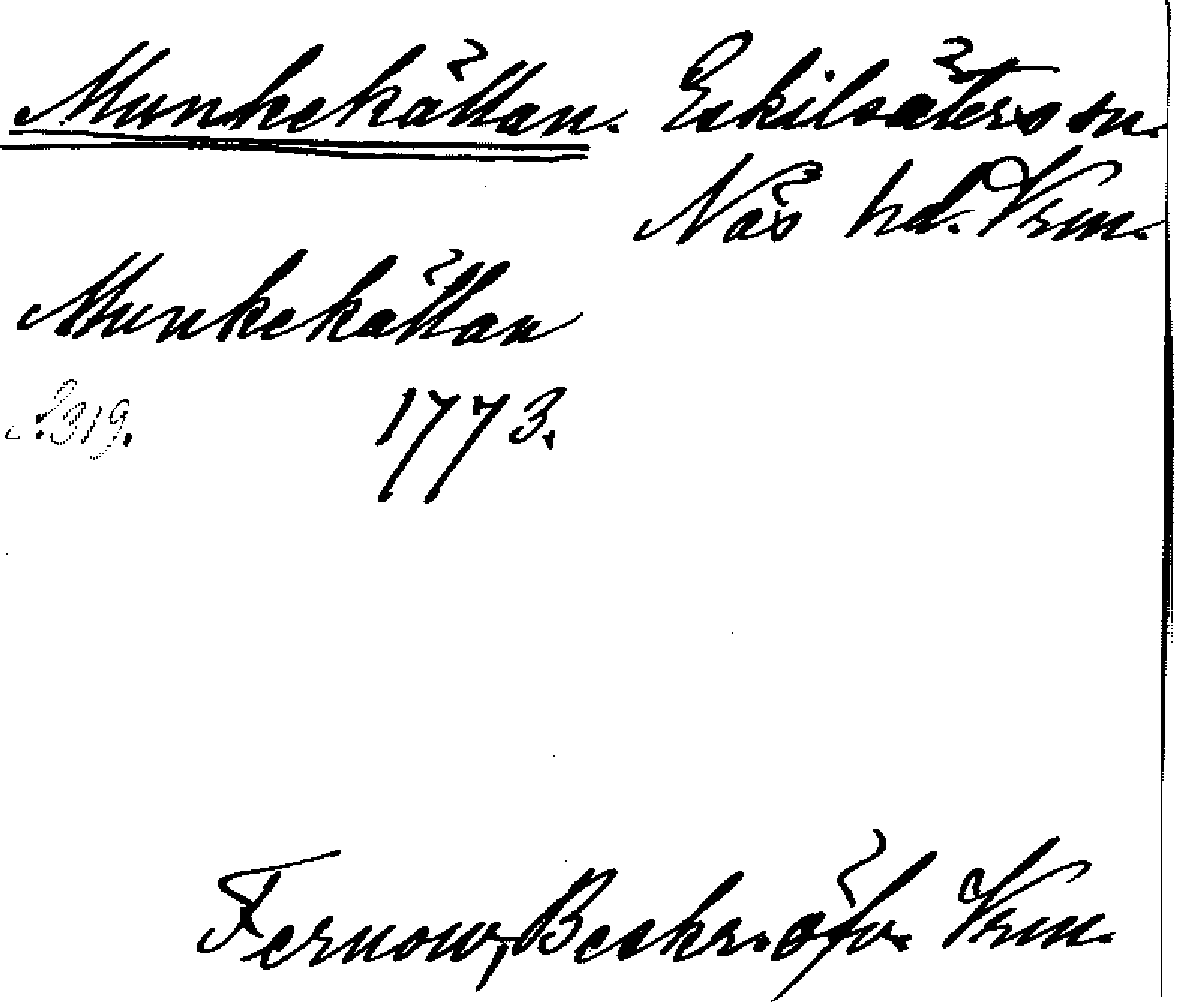 Munkekällan. Eskilsäters sn.
Näs hd. Vrm.
Munkekällan
S.319. 1773.
Fernow, Beskr. öfv. Vrm.